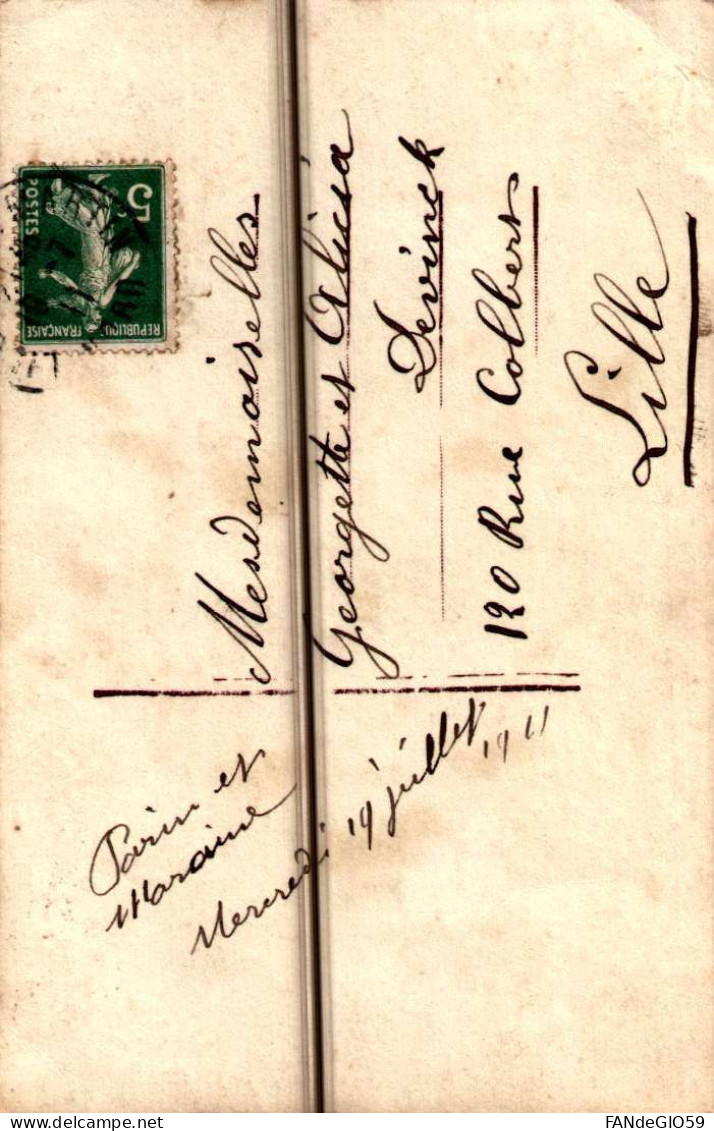 Mesdemoiselles
Georgette et Alicia
Devinck
120 Rue Colbert
Lille
Parin et
Maraine
Mercredi 19 juillet
1911
5
POSTES
REPUBLIQUE FRANÇAISE
Delcampe.net
FANdeGIO59